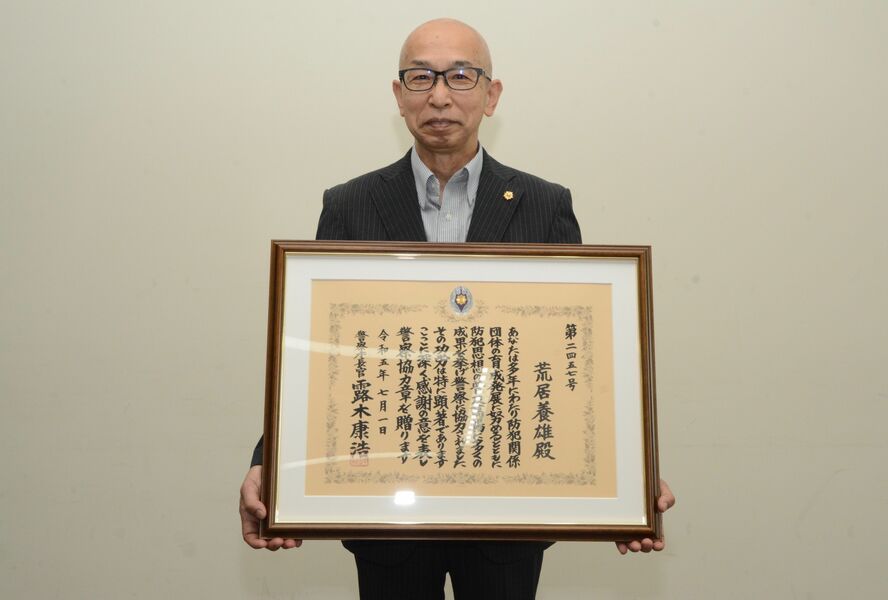 第二四五七号
荒居養雄殿
あなたは多年にわたり防犯関係
団体の育成発展に努めるとともに
防犯思想の
多くの
成果を挙げ警察に協力されました
その功労は特に顕著であります
ここに深く感謝の意を表し
警察協力章を贈ります
令和五年七月一日
警察庁長官 露木康浩